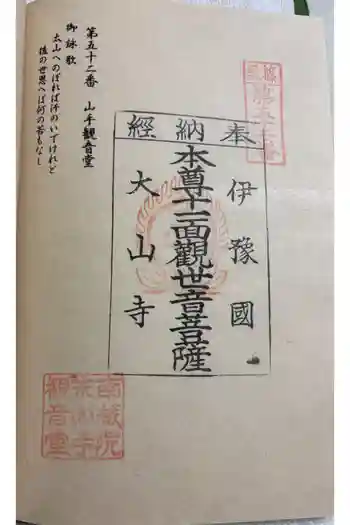 奉納経
伊豫國
本尊十一面觀世音菩薩
大山寺
第五十二番　山手觀音堂
御詠歌
太山へのぼれば汗のいでけれど
後の世思へば何の苦もなし